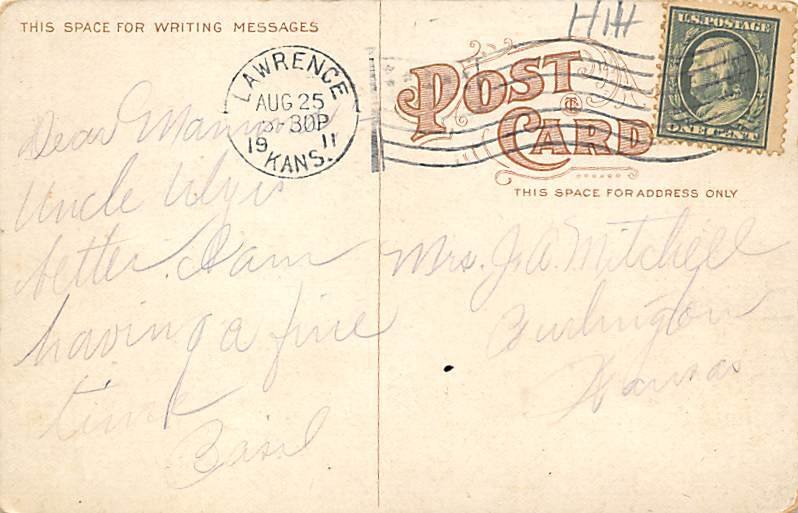 THIS SPACE FOR WRITING MESSAGES
LAWRENCE
AUG 25
30P
19 11
KANS.
POST
CARD
U.S. POSTAGE
ONE CENT
THIS SPACE FOR ADDRESS ONLY
Dear Mamma
Uncle is
better. I am
having a fine
time
Basil
Mrs. J. A. Mitchell
Burlington
Kansas